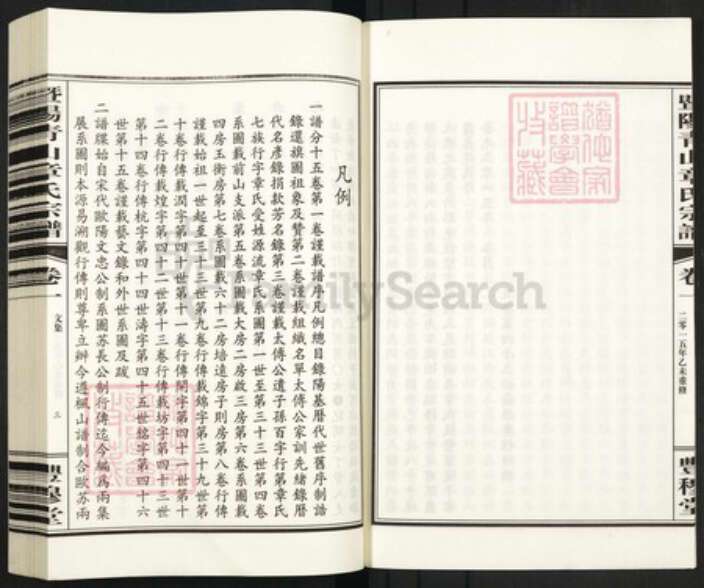 暨陽青山章氏宗譜
卷一
二零一五年乙未重修
豐穆堂
凡例
一譜分十五卷第一卷謹載譜序凡例總目錄陽基曆代世舊序制誥
錄還旗圖祖象及贊第二卷謹載組織名單太傅公家訓先緒錄曆
代名彥錄捐款芳名錄第三卷謹載太傅公遺子孫百字行第章氏
七族行字章氏受姓源流章氏系圖第一世至第三十三世第四卷
系圖載前山支派第五卷系圖載大房二房啟三房第六卷系圖載
四房玉衡房第七卷系圖載六十二房培遠房子則房第八卷行傳
謹載始祖一世起至三十三世第九卷行傳載錦字第三十九世第
十卷行傳載潤字第四十世第十一卷行傳開字第四十一世第十
二卷行傳載煌字第四十二世第十三卷行傳載坊字第四十三世
第十四卷行傳杭字第四十四世濤字第四十五世字第四十六
世第十五卷謹載藝文錄和外世系圖及跋
二譜牒始自宋代歐陽文忠公制系圖蘇長公制行傳迄今編為兩集
展系圖則本源易溯觀行傳則尊卑立辦今遵楓山譜制合歐蘇兩
暨陽青山章氏宗譜
卷一
文集
三
豐穆堂
FamilySearch
譜學會
收藏